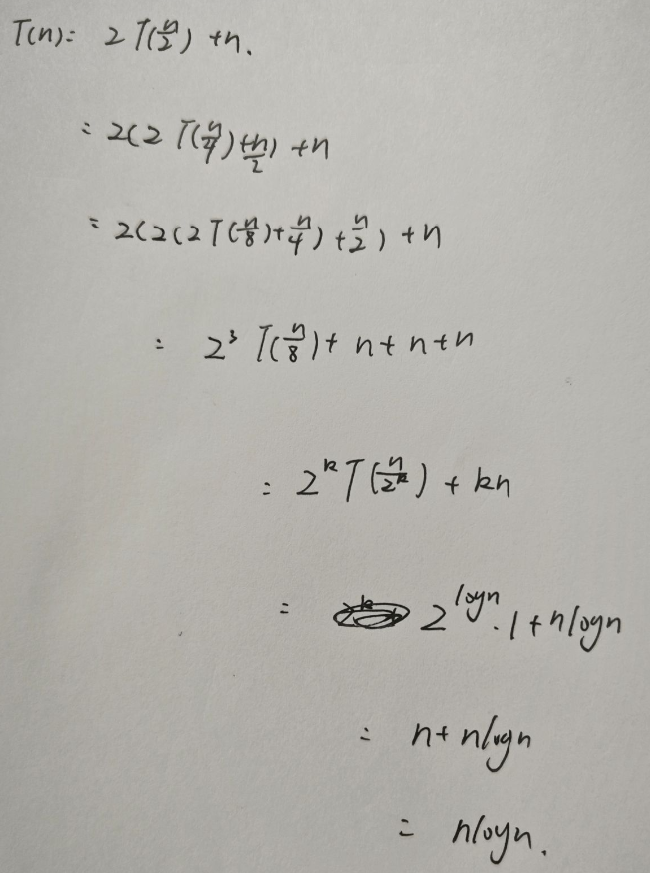 T(n) = 2T(n/2) + n.
= 2(2T(n/4) + n/2) + n
= 2(2(2T(n/8) + n/4) + n/2) + n
= 2³ T(n/8) + n + n + n
= 2^k T(n/2^k) + kn
= 2^logn · 1 + nlogn
= n + nlogn
= nlogn.